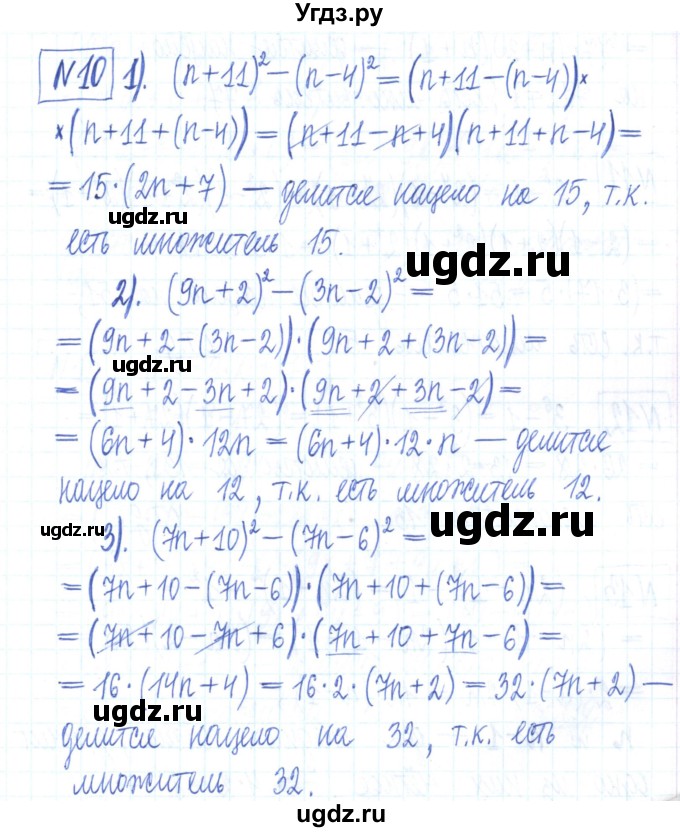 Угдз.ру
№10 1). (n+11)² − (n−4)² = (n+11−(n−4))×
×(n+11+(n−4)) = (n+11−n+4)(n+11+n−4) =
= 15·(2n+7) — делится нацело на 15, т.к.
ugdz.ru
есть множитель 15.
ugdz.ru
2). (9n+2)² − (3n−2)² =
= (9n+2−(3n−2))·(9n+2+(3n−2)) =
= (9n+2−3n+2)·(9n+2+3n−2) =
= (6n+4)·12n = (6n+4)·12·n — делится
ugdz.ru
нацело на 12, т.к. есть множитель 12.
ugdz.ru
ugdz.ru
3). (7n+10)² − (7n−6)² =
= (7n+10−(7n−6))·(7n+10+(7n−6)) =
= (7n+10−7n+6)·(7n+10+7n−6) =
= 16·(14n+4) = 16·2·(7n+2) = 32·(7n+2) —
ugdz.ru
делится нацело на 32, т.к. есть
ugdz.ru
множитель 32.
ugdz.ru